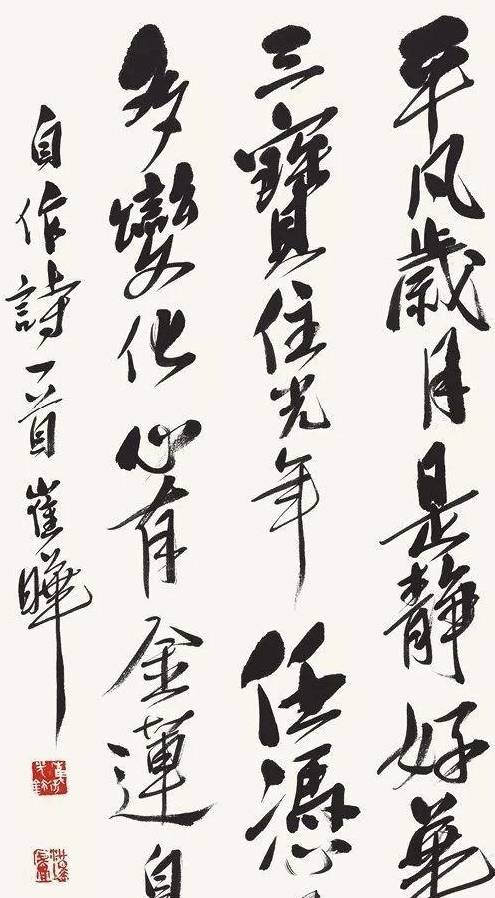 平凡歲月是靜好
三寶住光年任憑
多變化心有金蓮自
自作詩一首崔暉